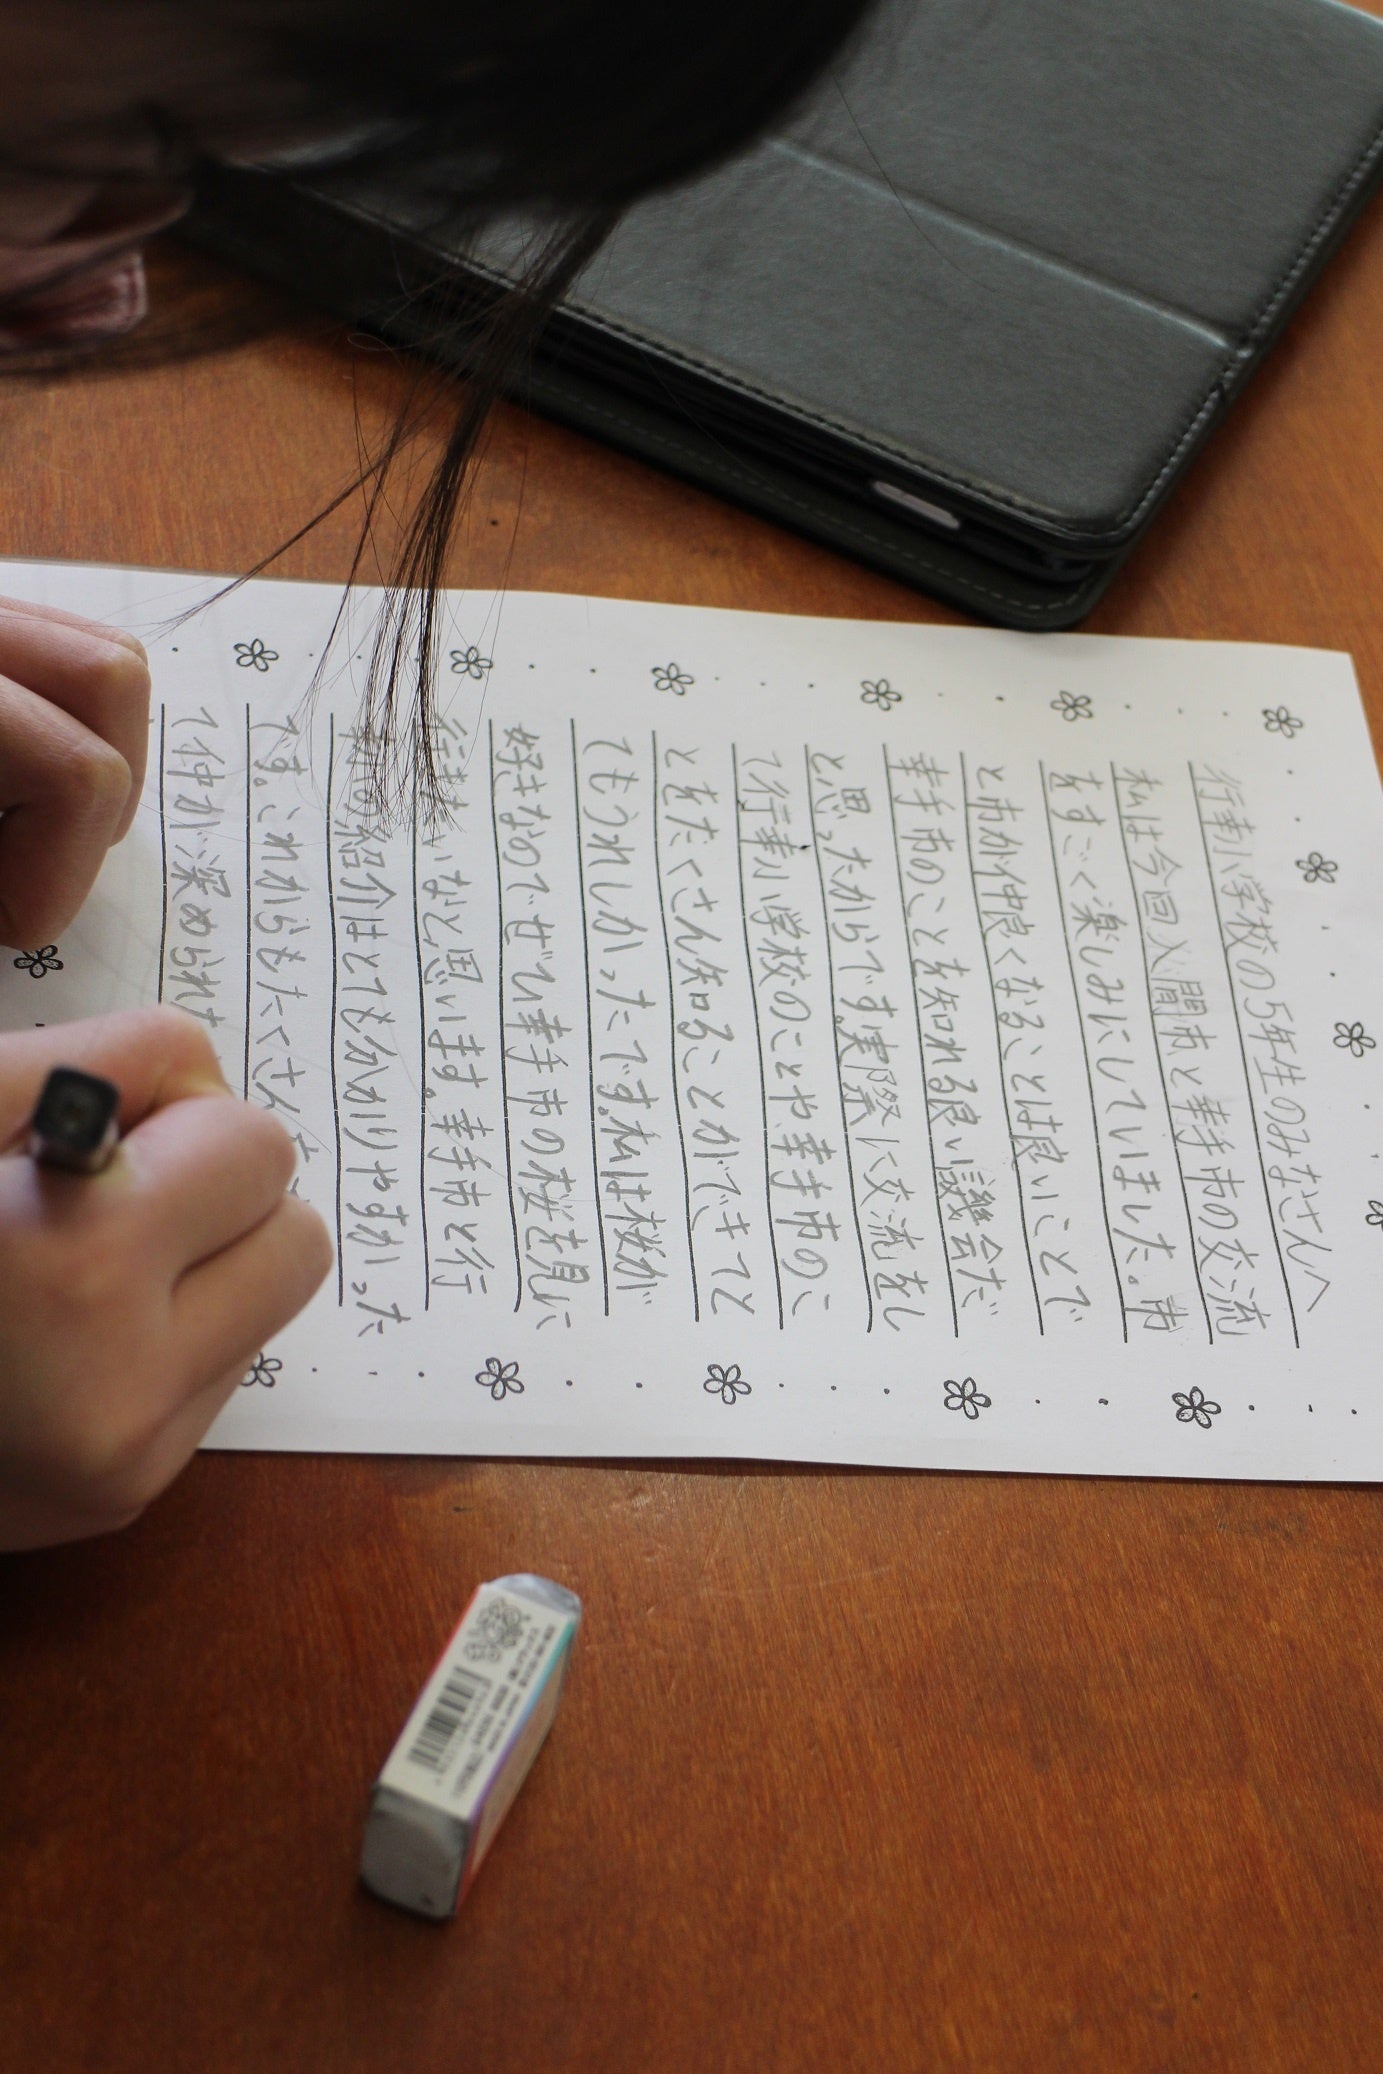 行幸小学校の5年生のみなさんへ
私は今回入間市と幸手市の交流
をすごく楽しみにしていました。市
と市が仲良くなることは良いことで
幸手市のことを知れる良い議会だ
と思ったからです実際に交流をし
て行幸小学校のことや幸手市のこ
とをたくさん知ることができてと
てもうれしかったです。私は桜が
好きなのでぜひ幸手市の桜を見に
行きたいなと思います。幸手市と行
の紹介はとても分かりやすかった
です。これからもたくさん
て仲が深められ